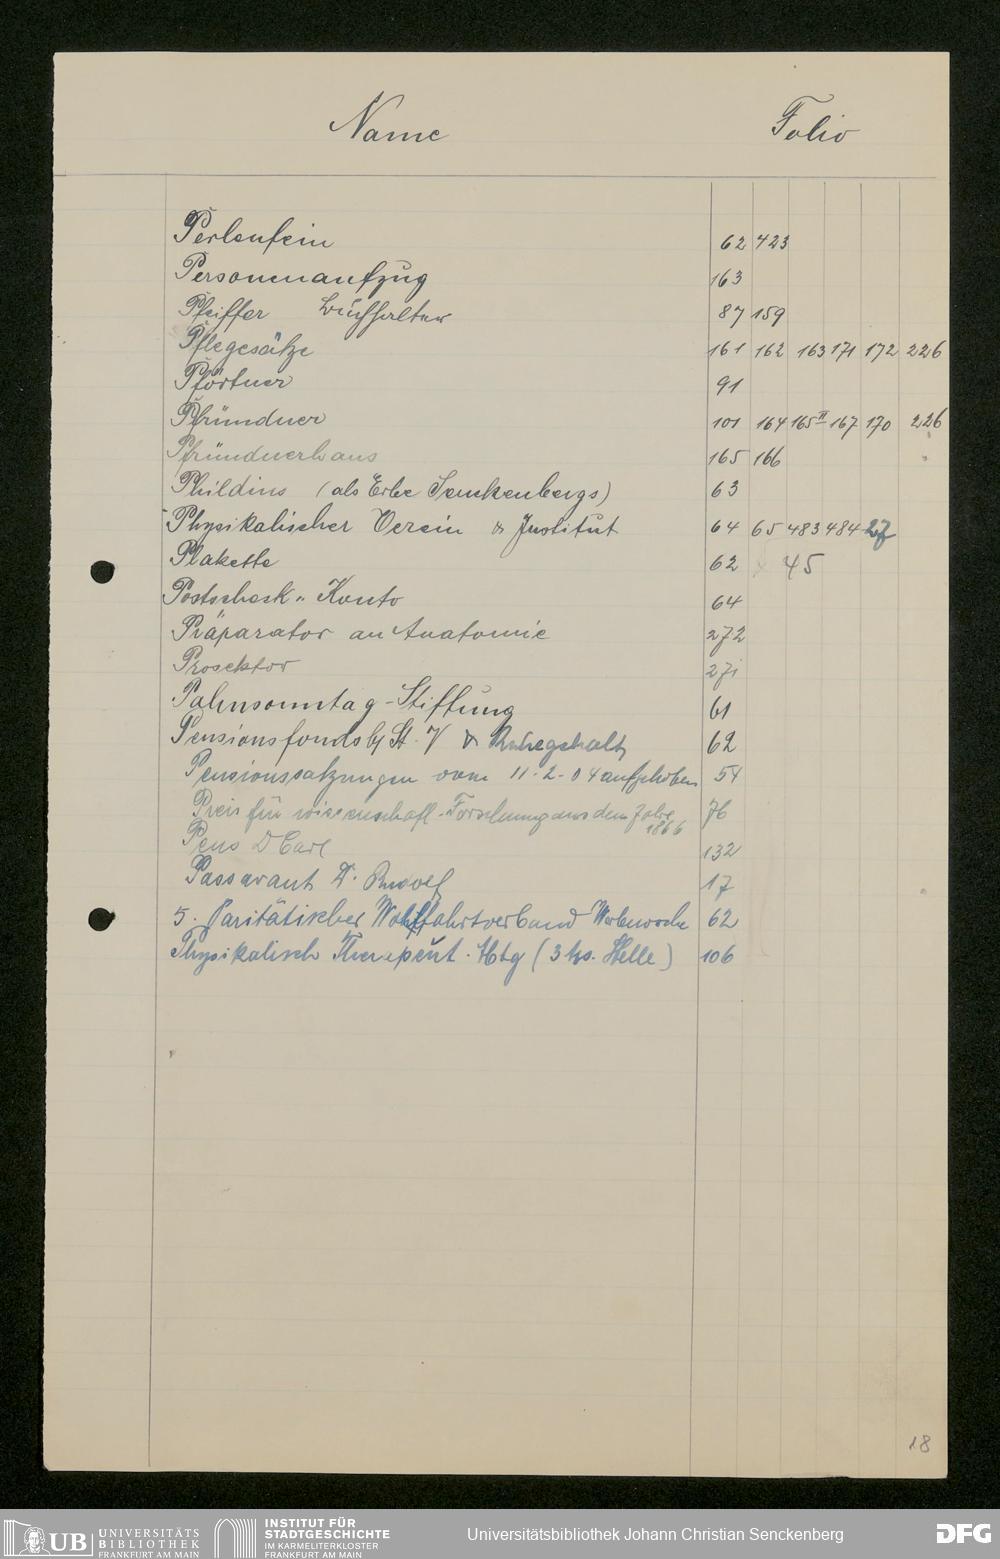 Name Folio
Perlenfein 62 423
Personenaufzug 163
Pfeiffer Buchhalter 87 159
Pflegesätze 161 162 163 171 172 226
Pförtner 91
Pfründner 101 164 165 II 167 170 226
Pfründnerhaus 165 166
Phildius (als Erbe Senckenbergs) 63
Physikalischer Verein & Institut 64 65 483 484 27
Plakette 62 45
Postscheck-Konto 64
Präparator an Anatomie 272
Prosektor 271
Palmsonntag-Stiftung 61
Pensionsfonds St. V & Ruhegehalt 62
Pensionssatzungen vom 11.2.04 aufgehoben 54
Preis für wissenschaftl. Forschung aus dem Jahre 76
1866
Pens D Carl 132
Passavant Dr. Rudolf 17
5. Paritätischer Wohlfahrtverband Werbewoche 62
Physikalisch Therapeut. Abtg (3 Stelle) 106
18
UB UNIVERSITÄTS
BIBLIOTHEK
FRANKFURT AM MAIN
INSTITUT FÜR
STADTGESCHICHTE
IM KARMELITERKLOSTER
FRANKFURT AM MAIN
Universitätsbibliothek Johann Christian Senckenberg
DFG